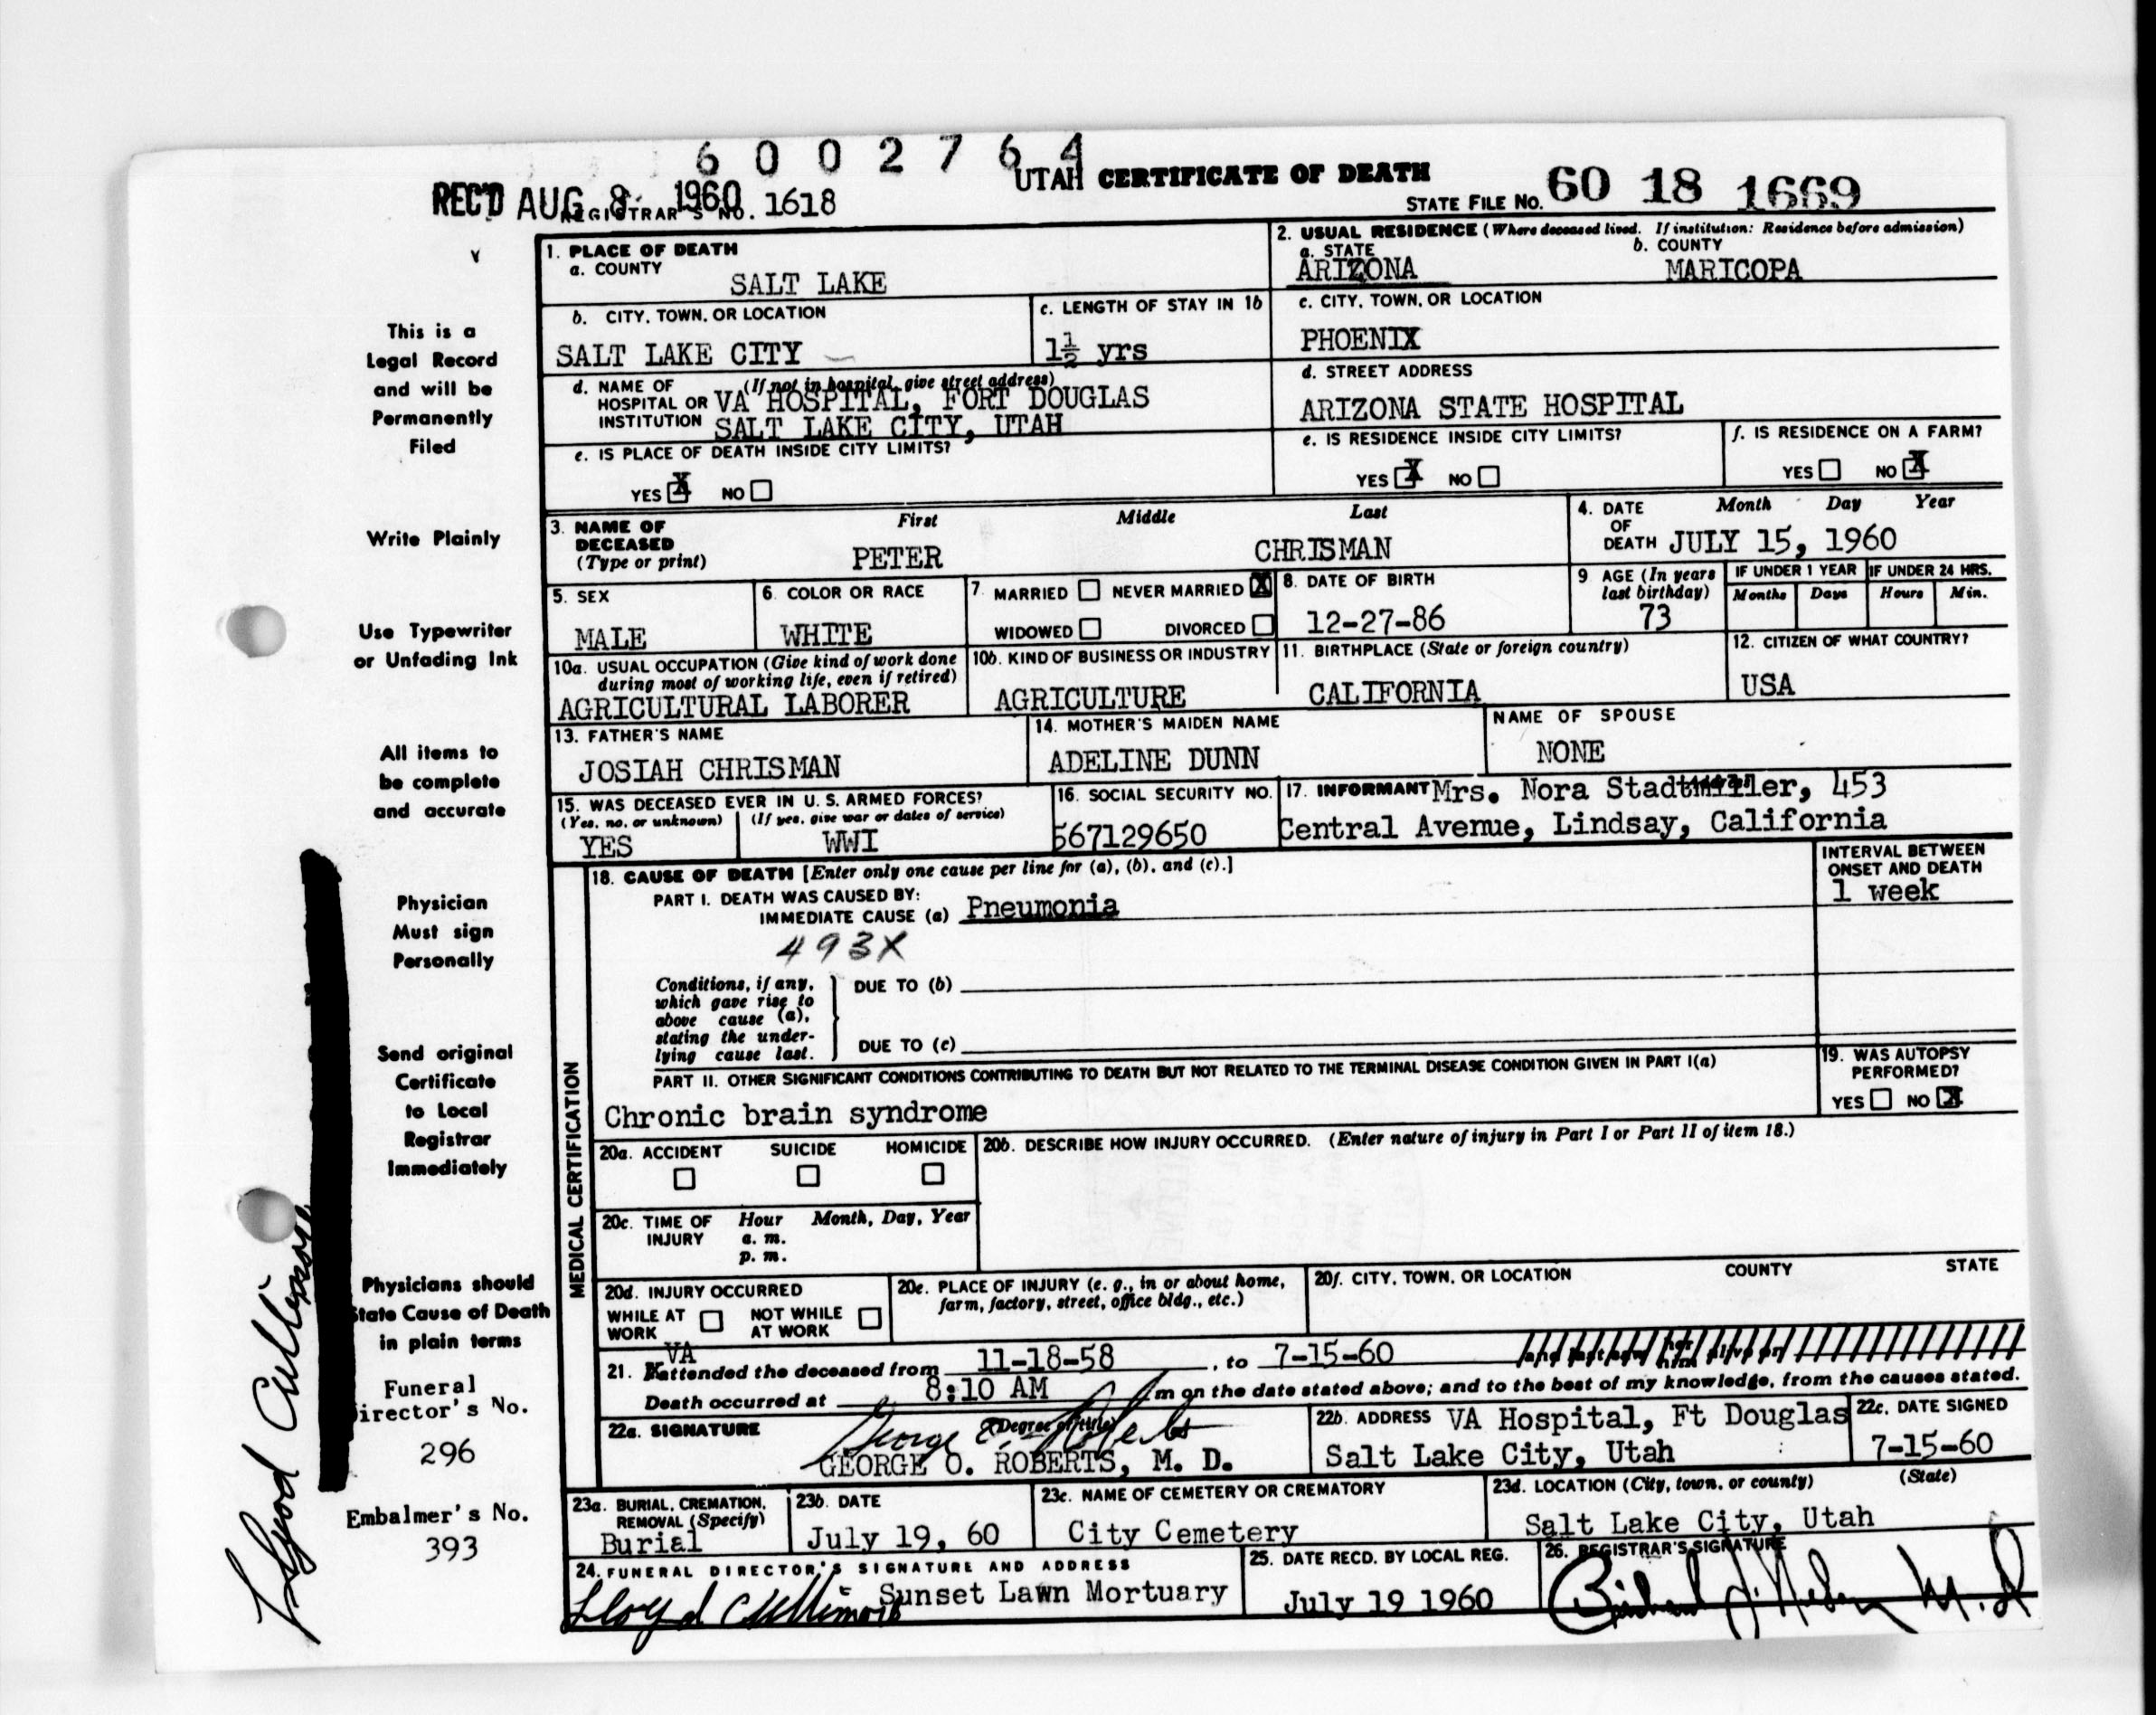 6 0 0 2 7 6 4
UTAH CERTIFICATE OF DEATH
REC'D AUG 8 1960
REGISTRAR'S NO. 1618
STATE FILE NO. 60 18 1669
1. PLACE OF DEATH
a. COUNTY
SALT LAKE
2. USUAL RESIDENCE (Where deceased lived. If institution: Residence before admission)
a. STATE b. COUNTY
ARIZONA MARICOPA
b. CITY, TOWN, OR LOCATION
SALT LAKE CITY
c. LENGTH OF STAY IN 1b
1½ yrs
c. CITY, TOWN, OR LOCATION
PHOENIX
d. NAME OF (If not in hospital, give street address)
HOSPITAL OR VA HOSPITAL, FORT DOUGLAS
INSTITUTION SALT LAKE CITY, UTAH
d. STREET ADDRESS
ARIZONA STATE HOSPITAL
e. IS PLACE OF DEATH INSIDE CITY LIMITS?
YES X NO
e. IS RESIDENCE INSIDE CITY LIMITS?
YES X NO
f. IS RESIDENCE ON A FARM?
YES NO X
3. NAME OF DECEASED (Type or print)
First Middle Last
PETER CHRISMAN
4. DATE OF DEATH
Month Day Year
JULY 15, 1960
5. SEX
MALE
6. COLOR OR RACE
WHITE
7. MARRIED NEVER MARRIED X
WIDOWED DIVORCED
8. DATE OF BIRTH
12-27-86
9 AGE (In years last birthday)
73
IF UNDER 1 YEAR IF UNDER 24 HRS.
Months Days Hours Min.
10a. USUAL OCCUPATION (Give kind of work done
during most of working life, even if retired)
AGRICULTURAL LABORER
10b. KIND OF BUSINESS OR INDUSTRY
AGRICULTURE
11. BIRTHPLACE (State or foreign country)
CALIFORNIA
12. CITIZEN OF WHAT COUNTRY?
USA
13. FATHER'S NAME
JOSIAH CHRISMAN
14. MOTHER'S MAIDEN NAME
ADELINE DUNN
NAME OF SPOUSE
NONE
15. WAS DECEASED EVER IN U. S. ARMED FORCES?
(Yes, no, or unknown) (If yes, give war or dates of service)
YES WWI
16. SOCIAL SECURITY NO.
567129650
17. INFORMANT Mrs. Nora Stadtmiller, 453
Central Avenue, Lindsay, California
MEDICAL CERTIFICATION
18. CAUSE OF DEATH [Enter only one cause per line for (a), (b), and (c).]
PART I. DEATH WAS CAUSED BY:
IMMEDIATE CAUSE (a) Pneumonia
493X
INTERVAL BETWEEN
ONSET AND DEATH
1 week
Conditions, if any,
which gave rise to
above cause (a),
stating the under-
lying cause last.
DUE TO (b)
DUE TO (c)
PART II. OTHER SIGNIFICANT CONDITIONS CONTRIBUTING TO DEATH BUT NOT RELATED TO THE TERMINAL DISEASE CONDITION GIVEN IN PART I(a)
Chronic brain syndrome
19. WAS AUTOPSY
PERFORMED?
YES NO X
20a. ACCIDENT SUICIDE HOMICIDE
20b. DESCRIBE HOW INJURY OCCURRED. (Enter nature of injury in Part I or Part II of item 18.)
20c. TIME OF INJURY
Hour Month, Day, Year
a. m.
p. m.
20d. INJURY OCCURRED
WHILE AT WORK NOT WHILE AT WORK
20e. PLACE OF INJURY (e. g., in or about home,
farm, factory, street, office bldg., etc.)
20f. CITY, TOWN, OR LOCATION COUNTY STATE
VA
21. attended the deceased from 11-18-58, to 7-15-60 and last saw her him alive on
Death occurred at 8:10 AM m on the date stated above; and to the best of my knowledge, from the causes stated.
22a. SIGNATURE (Degree or title)
George O. Roberts
GEORGE O. ROBERTS, M. D.
22b. ADDRESS VA Hospital, Ft Douglas
Salt Lake City, Utah
22c. DATE SIGNED
7-15-60
23a. BURIAL, CREMATION,
REMOVAL (Specify)
Burial
23b. DATE
July 19, 60
23c. NAME OF CEMETERY OR CREMATORY
City Cemetery
23d. LOCATION (City, town, or county) (State)
Salt Lake City, Utah
24. FUNERAL DIRECTOR'S SIGNATURE AND ADDRESS
Lloyd Cullimore Sunset Lawn Mortuary
25. DATE RECD. BY LOCAL REG.
July 19 1960
26. REGISTRAR'S SIGNATURE
M.D
This is a
Legal Record
and will be
Permanently
Filed
Write Plainly
Use Typewriter
or Unfading Ink
All items to
be complete
and accurate
Physician
Must sign
Personally
Send original
Certificate
to Local
Registrar
Immediately
Physicians should
State Cause of Death
in plain terms
Funeral
Director's No.
296
Embalmer's No.
393
Lloyd Cullimore